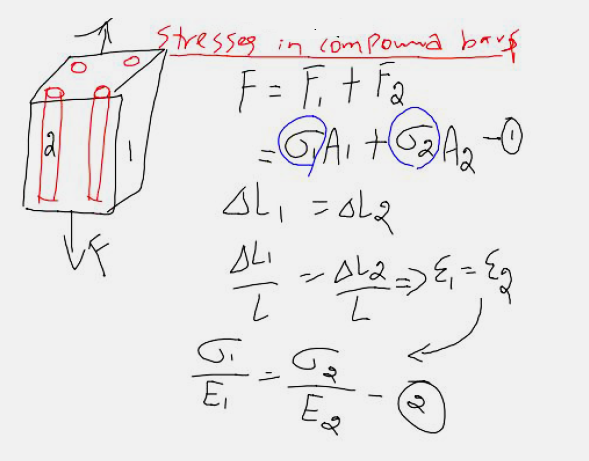 Stresses in compound bars
F = F₁ + F₂
= σ₁A₁ + σ₂A₂ - ①
ΔL₁ = ΔL₂
ΔL₁/L = ΔL₂/L => ε₁ = ε₂
σ₁/E₁ = σ₂/E₂ - ②
2
1
F